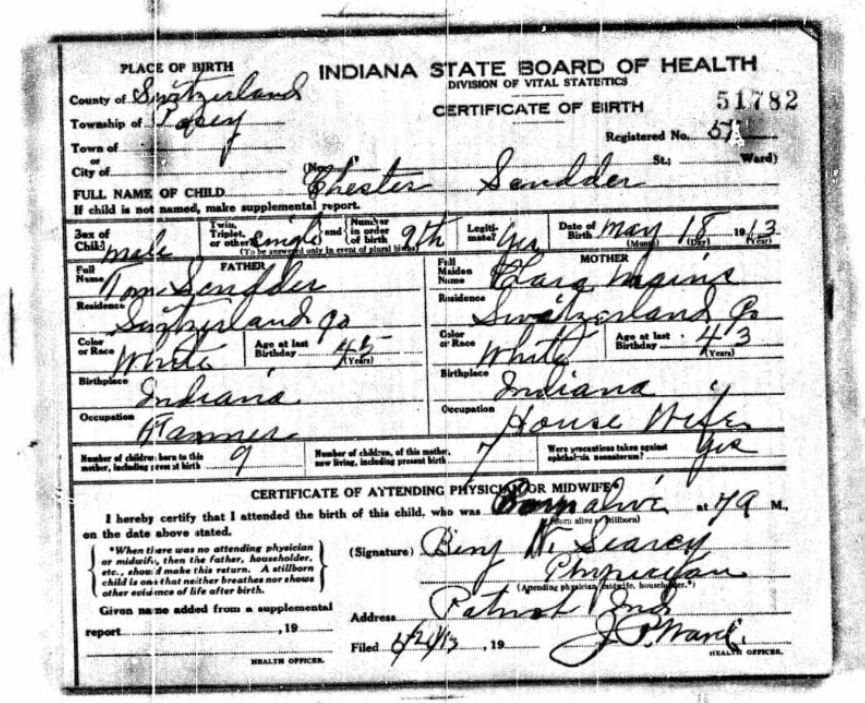 PLACE OF BIRTH
INDIANA STATE BOARD OF HEALTH
DIVISION OF VITAL STATISTICS
CERTIFICATE OF BIRTH
51782
County of Switzerland
Township of Posey
Registered No. 57
Town of
or
City of (No. St.; Ward)
FULL NAME OF CHILD Chester Scudder
If child is not named, make supplemental report.
Sex of Child male Twin, Triplet, or other? Single and Number in order of birth 9th Legitimate? Yes Date of Birth May 18 1913
(To be answered only in event of plural births) (Month) (Day) (Year)
FATHER MOTHER
Full Name Tom Scudder Full Maiden Name Clara Mains
Residence Switzerland Co Residence Switzerland Co
Color or Race White Age at last Birthday 45 (Years) Color or Race White Age at last Birthday 43 (Years)
Birthplace Indiana Birthplace Indiana
Occupation Farmer Occupation House Wife
Number of children born to this mother, including present birth 9 Number of children, of this mother, now living, including present birth 7 Were precautions taken against ophthalmia neonatorum? Yes
CERTIFICATE OF ATTENDING PHYSICIAN OR MIDWIFE*
I hereby certify that I attended the birth of this child, who was Born alive at 7 A M.,
(Born alive or Stillborn)
on the date above stated.
*When there was no attending physician
or midwife, then the father, householder,
etc., should make this return. A stillborn
child is one that neither breathes nor shows
other evidence of life after birth.
(Signature) Benj W. Searcy
Physician
(Attending physician, midwife, householder.*)
Given name added from a supplemental
report , 19
HEALTH OFFICER.
Address Patriot Ind
Filed 5/21/13 , 19 J. P. Ward
HEALTH OFFICER.